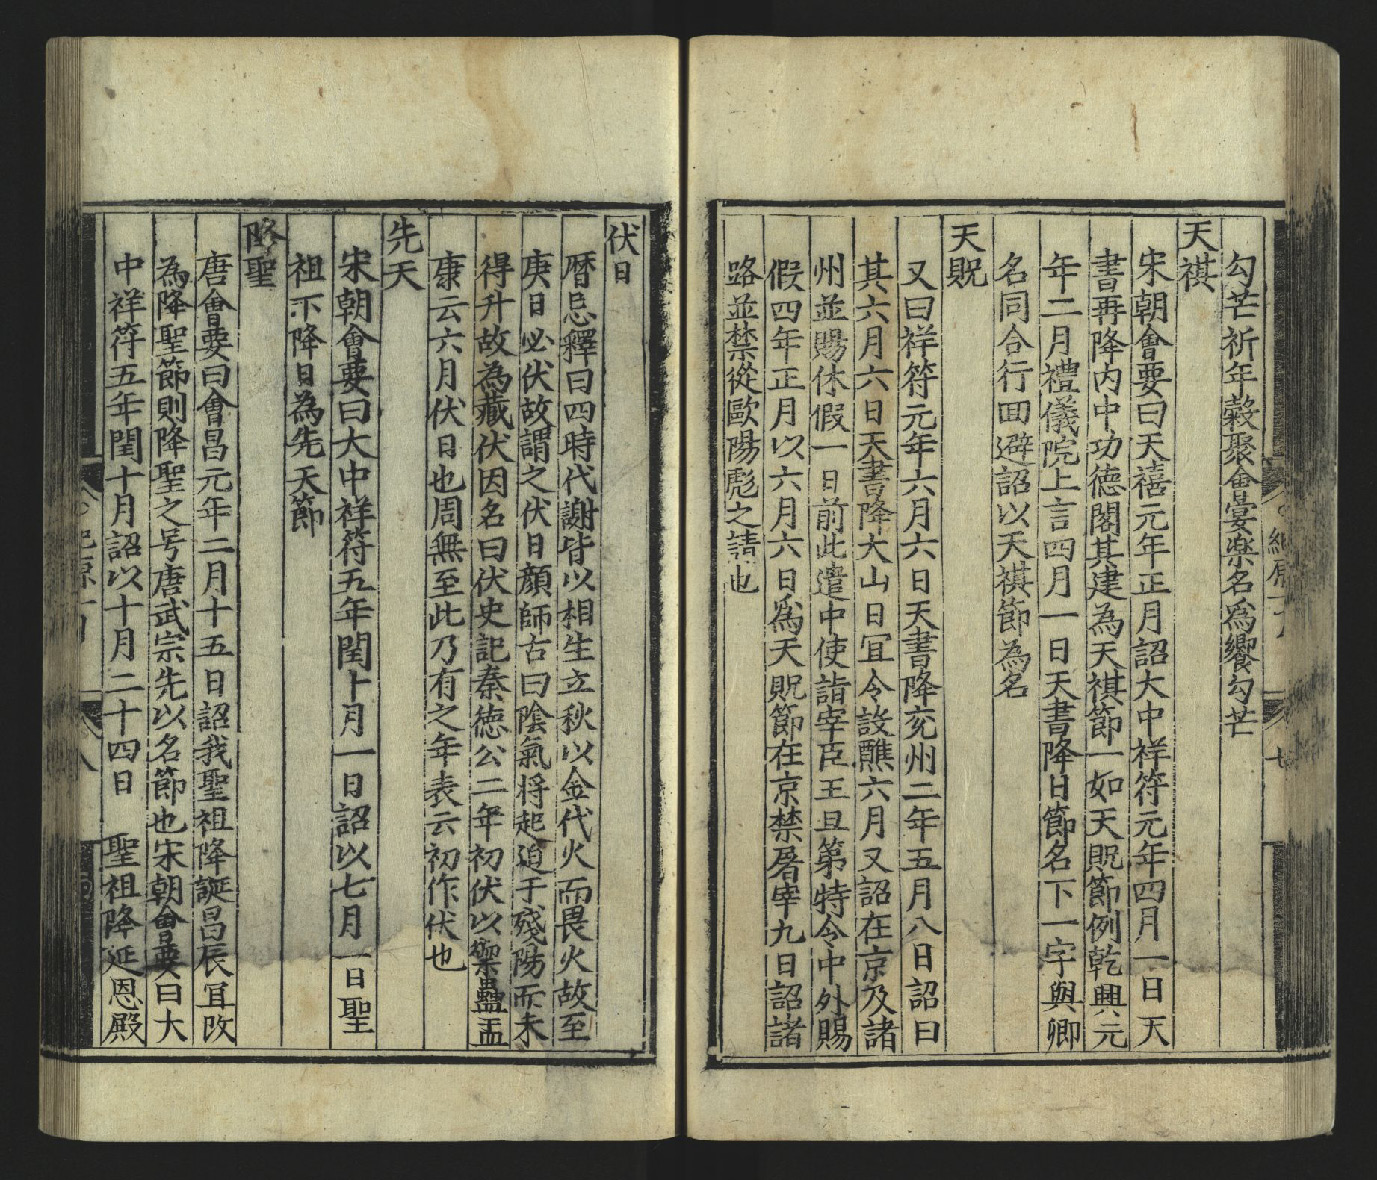 勾芒祈年穀聚會宴樂名爲饗勾芒
天祺
宋朝會要曰天禧元年正月詔大中祥符元年四月一日天
書再降内中功德閣其建為天祺節一如天貺節例乾興元
年二月禮儀院上言四月一日天書降日節名下一字與卿
名同合行回避詔以天祺節為名
天貺
又曰祥符元年六月六日天書降兖州二年五月八日詔曰
其六月六日天書降大山日宜令設醮六月又詔在京及諸
州並賜休假一日前此遣中使詣宰臣王旦第特令中外賜
假四年正月以六月六日爲天貺節在京禁屠宰九日詔諸
路並禁從歐陽彪之請也
伏日
曆忌釋曰四時代謝皆以相生立秋以金代火而畏火故至
庚日必伏故謂之伏日顔師古曰陰氣將起迫于殘陽而未
得升故為藏伏因名曰伏史記秦德公二年初伏以禦蠱孟
康云六月伏日也周無至此乃有之年表云初作伏也
先天
宋朝會要曰大中祥符五年閏十月一日詔以七月一日聖
祖下降日為先天節
降聖
唐會要曰會昌元年二月十五日詔我聖祖降誕昌辰宜改
為降聖節則降聖之号唐武宗先以名節也宋朝會要曰大
中祥符五年閏十月詔以十月二十四日 聖祖降延恩殿